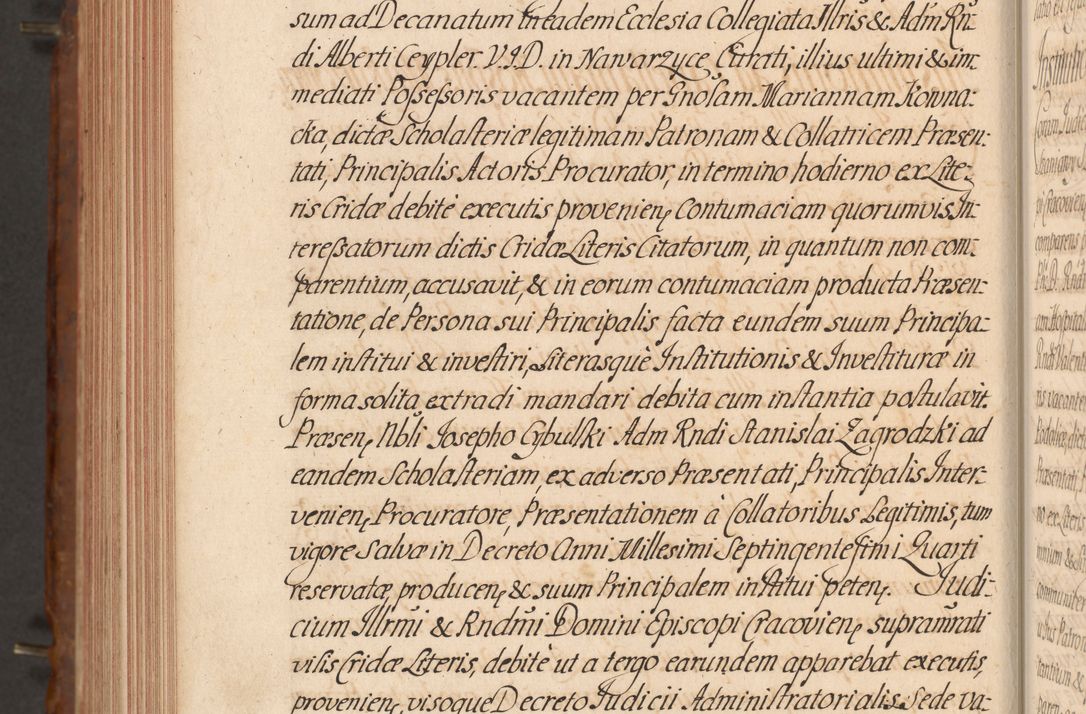 sum ad Decanatum in eadem Ecclesia Collegiata Illris & Adm Rn:
di Alberti Ceypler. V.I.D. in Nawarzyce Curati, illius ultimi & im:
mediati Possessoris vacantem per Gnosam Mariannam Kowna:
cka, dictæ Scholasteriæ legitimam Patronam & Collatricem Præsen:
tati, Principalis Actoris Procurator, in termino hodierno ex Lite:
ris Cridæ debitè executis provenienę Contumaciam quorumvis In:
teressatorum dictis Cridæ Literis Citatorum, in quantum non com:
parentium, accusavit, & in eorum contumaciam producta Præsen:
tatione, de Persona sui Principalis facta eundem suum Principa:
lem institui & investiri, Literasquè Institutionis & Investituræ in
forma solita extradi mandari debita cum instantia postulavit.
Præsenę Nbli Josepho Cybulski Adm Rndi Stanislai Zagrodzki ad
eandem Scholasteriam, ex adverso Præsentati, Principalis Inter:
venienę Procuratore, Præsentationem à Collatoribus Legitimis, tum
vigore Salvæ in Decreto Anni Millesimi Septingentesimi Quarti
reservatæ, producenę & suum Principalem institui petenę. Judi:
cium Illrmi & Rndmi Domini Episcopi Cracovienę supramrati
visis Cridæ Literis, debitè ut a tergo earundem apparebat executis,
provenienę, visoque Decreto Judicii Administratorialis Sede va: